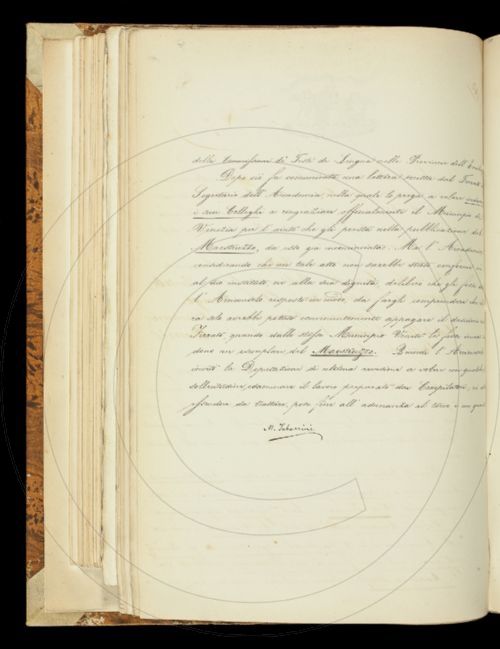 della Commissione de' Testi di Lingua nelle Provincie dell'
Dopo ciò fu comunicata una lettera scritta dal
Segretario dell'Accademia, nella quale lo prega a voler
i suoi Colleghi a ringraziare officialmente il Municipio di
Venezia per l'aiuto che gli presta nella pubblicazione del
da esso già incominciata. Ma l'Accademia
considerando che un tale atto non sarebbe stato conforme
al suo instituto nè alla sua dignità, deliberò che gli fosse
l' risposto in modo, da fargli comprendere che
solo avrebbe potuto convenientemente appagare il desiderio
quando dallo stesso Municipio Veneto le fosse
dono un esemplare del Quindi l'Accademia
invitò la Deputazione di a voler con qualche
sollecitudine esaminare il lavoro preparato dai Compilatori,
essendo da trattare, pose fine all'adunanza al tocco e un quarto
M. Tabarrini